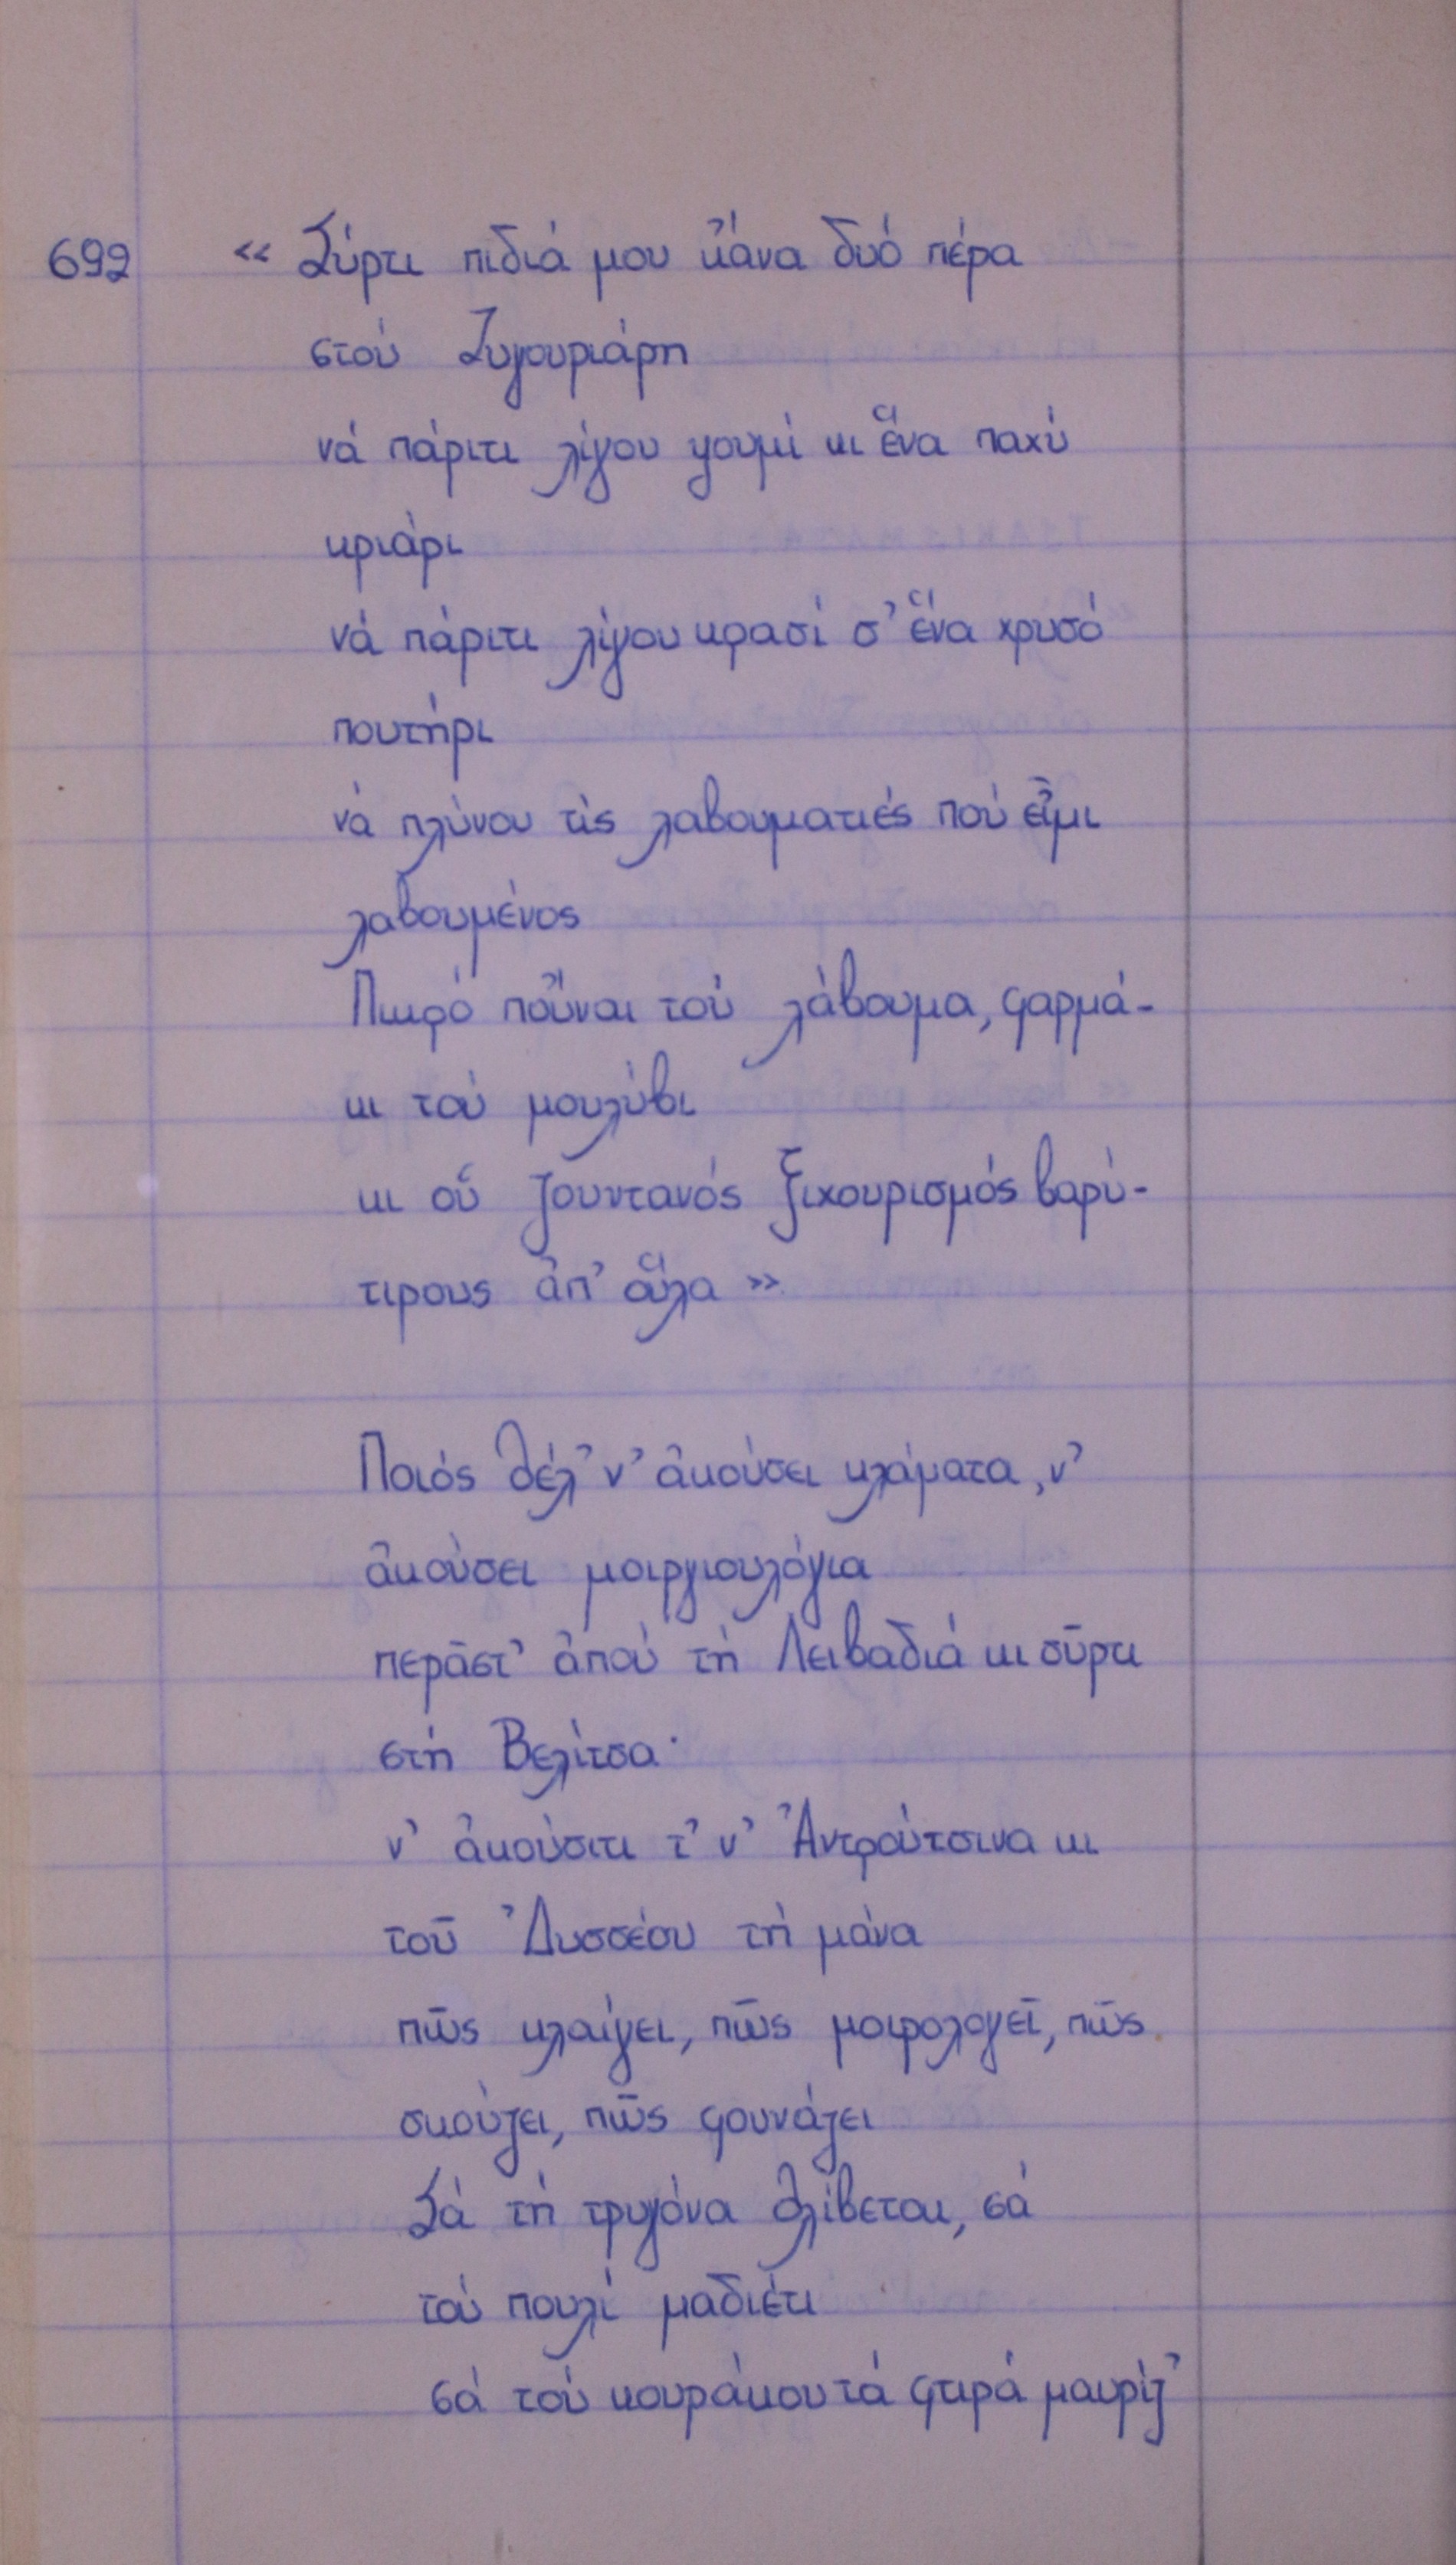 692 « Σύρτι πιδιά μου κἄνα δυό πέρα
στού Ζυγουριάρη
νά πάριτι λίγου ψουμί κι ἕνα παχύ
κριάρι
νά πάριτι λίγου κρασί σ' ἕνα χρυσό
πουτήρι
νά πλύνου τίς λαβουματιές πού εἶμι
λαβουμένος
Πικρό ποὖναι τού λάβουμα, φαρμά-
κι τού μουλύβι
κι οὑ ζουντανός ξιχουρισμός βαρύ-
τιρους ἀπ' οὕλα »
Ποιός θέλ' ν' ἀκούσει κλάματα, ν'
ἀκούσει μοιργιουλόγια
περᾶστ' ἀπού τή Λειβαδιά κι σῦρτι
στή Βελίτσα·
ν' ἀκούσιτι τ' ν' Ἀντρούτσινα κι
τοῦ 'Δυσσέου τή μάνα
πῶς κλαίγει, πῶς μοιρολογεῖ, πῶς
σκούζει, πῶς φουνάζει
Σά τή τρυγόνα θλίβεται, σά
τού πουλί μαδιέτι
σά τού κουράκου τά φτιρά μαυρίζ'